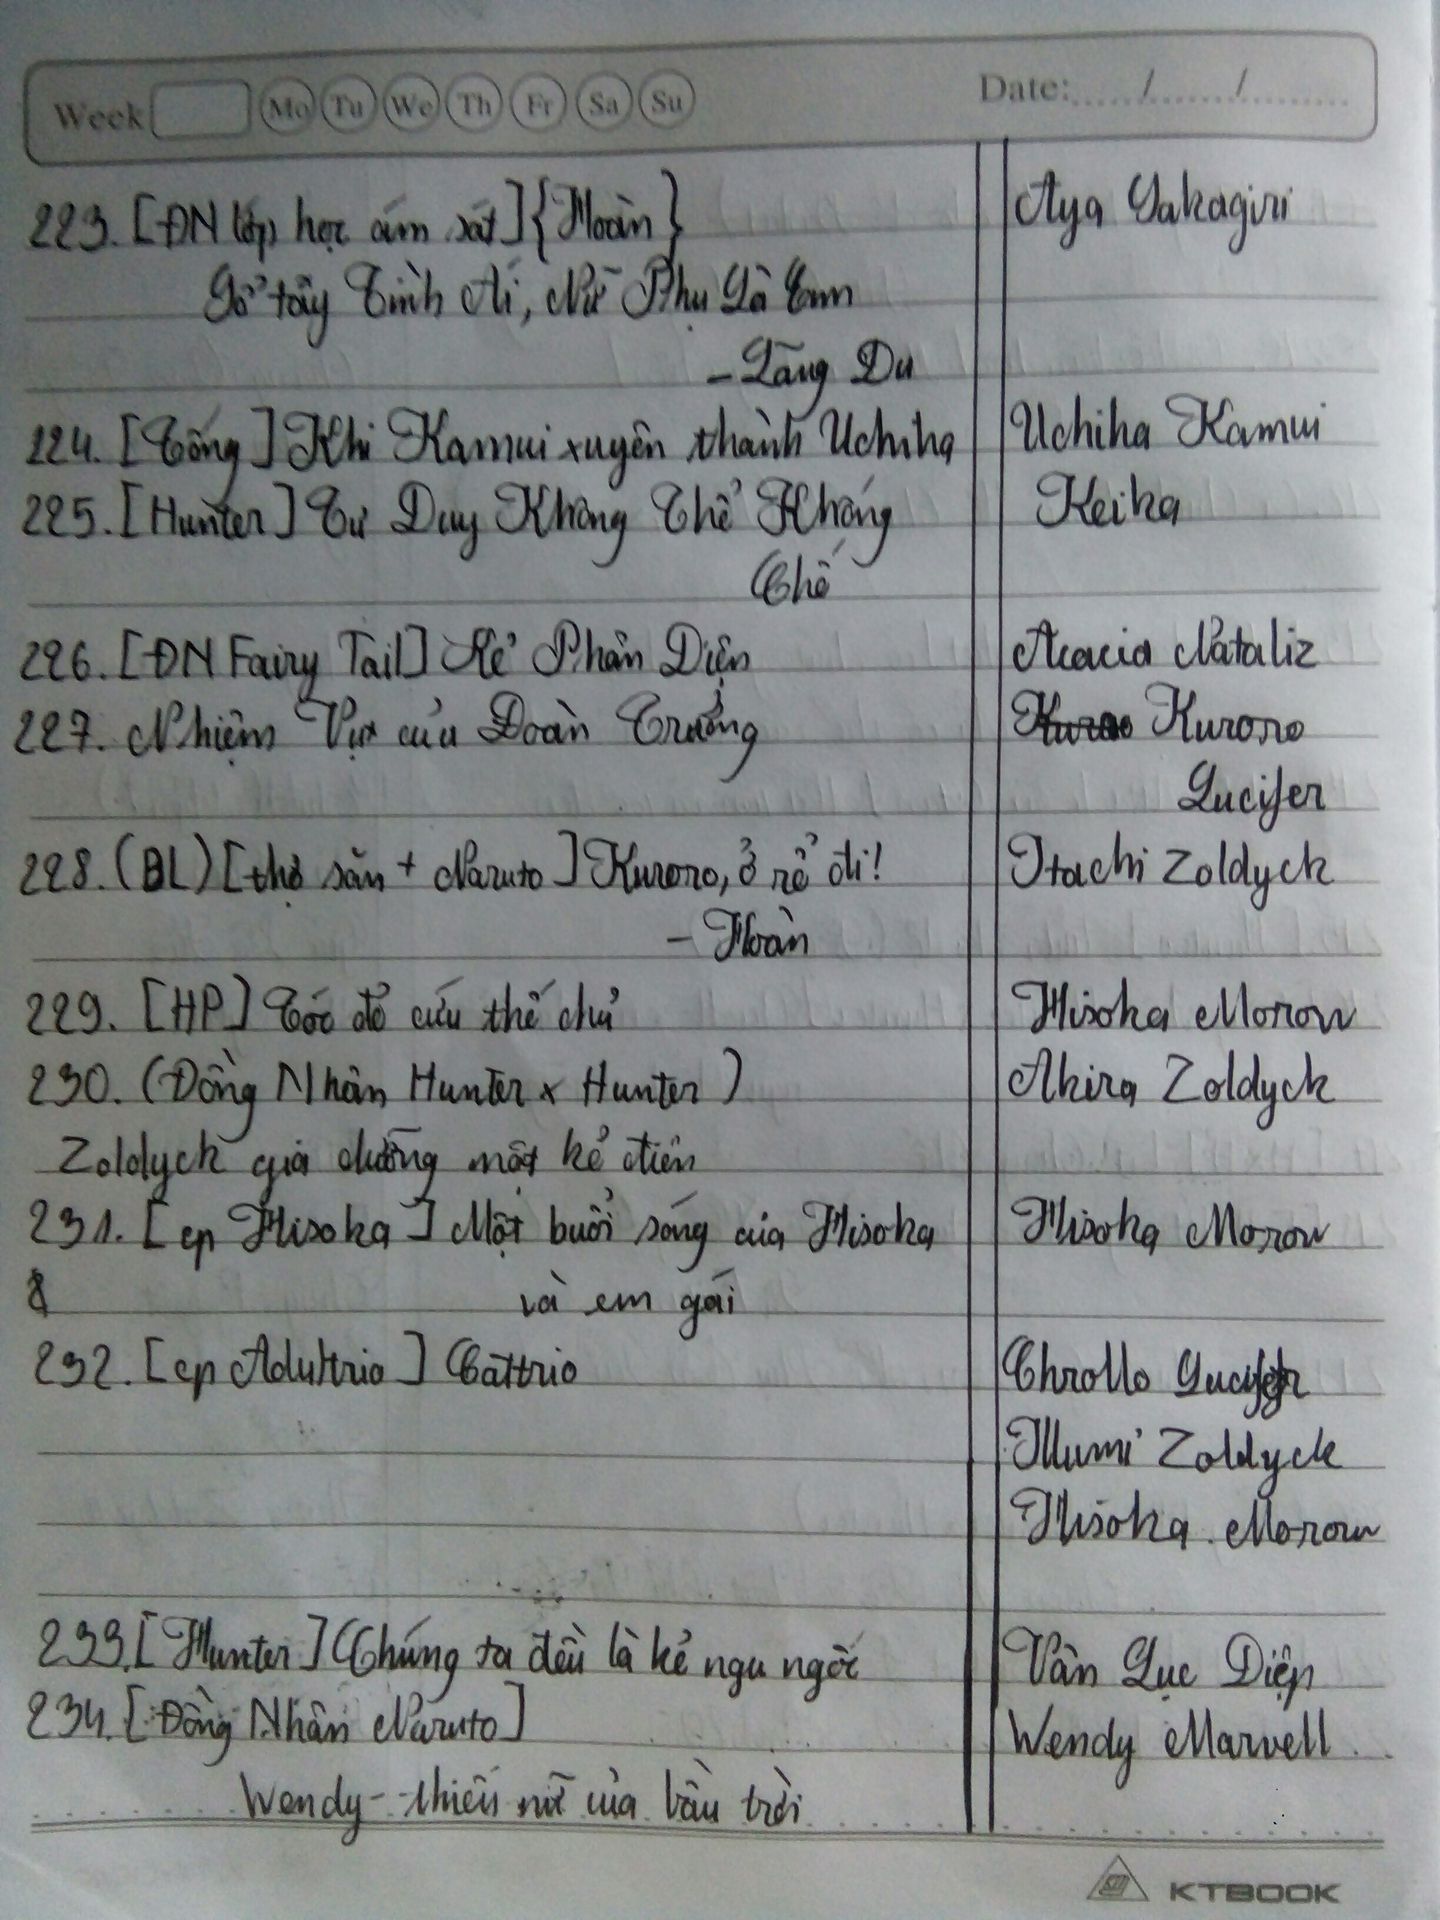 Week Mo Tu We Th Fr Sa Su Date: ...../......./.........
223. [ĐN lớp học ám sát] {Hoàn} Aya Takagiri
Gỡ tẩy Tình Ái, Nữ Phụ Là Em
- Lãng Du
224. [Tống] Khi Kamui xuyên thành Uchiha Uchiha Kamui
225. [Hunter] Tư Duy Không Thể Khống Keika
Chế
226. [ĐN Fairy Tail] Kẻ Phản Diện Acacia Nataliz
227. Nhiệm Vụ của Đoàn Trưởng Kuroro
Lucifer
228. (BL) [thợ săn + Naruto] Kuroro, ở rể đi! Itachi Zoldyck
- Hoàn
229. [HP] Tóc đỏ cứu thế chủ Hisoka Morow
230. (Đồng Nhân Hunter x Hunter) Akira Zoldyck
Zoldyck gia dưỡng một kẻ điên
231. [cp Hisoka] Một buổi sáng của Hisoka Hisoka Morow
và em gái
232. [cp Adultrio] Cattrio Chrollo Lucifer
Illumi Zoldyck
Hisoka Morow
233. [Hunter] Chúng ta đều là kẻ ngu ngốc Vân Lục Diệp
234. [Đồng Nhân Naruto] Wendy Marvell
Wendy - thiếu nữ của bầu trời
KTBOOK